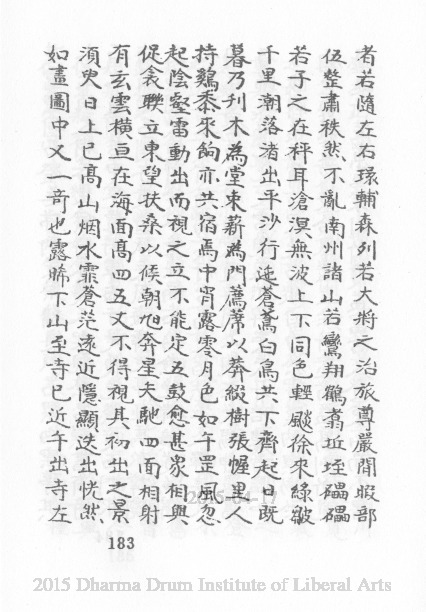 者若隨左右環輔森列若大將之治旅尊嚴閒暇部
伍整肅秩然不亂南州諸山若鸞翔鶴翥近垤礧礧
若子之在枰耳滄溟無波上下同色輕颷徐來綠皺
千里朝落渚出平沙行迤蒼鳶白鳥共下齊起日既
暮乃刊木為堂束薪為門薦蓆以莽綴樹張幄里人
持雞黍來餉亦共宿焉中宵露零月色如午罡風忽
起陰壑雷動出而視之立不能定五鼓愈甚眾相與
促衾聯立東望扶桑以候朝旭奔星夭馳四面相射
有玄雲橫亘在海面高四五丈不得視其初出之景
須臾日上已高山烟水霏蒼茫遠近隱顯迭出恍然
如畫圖中又一奇也露晞下山至寺已近午出寺左
183
2015-04-17
2015 Dharma Drum Institute of Liberal Arts